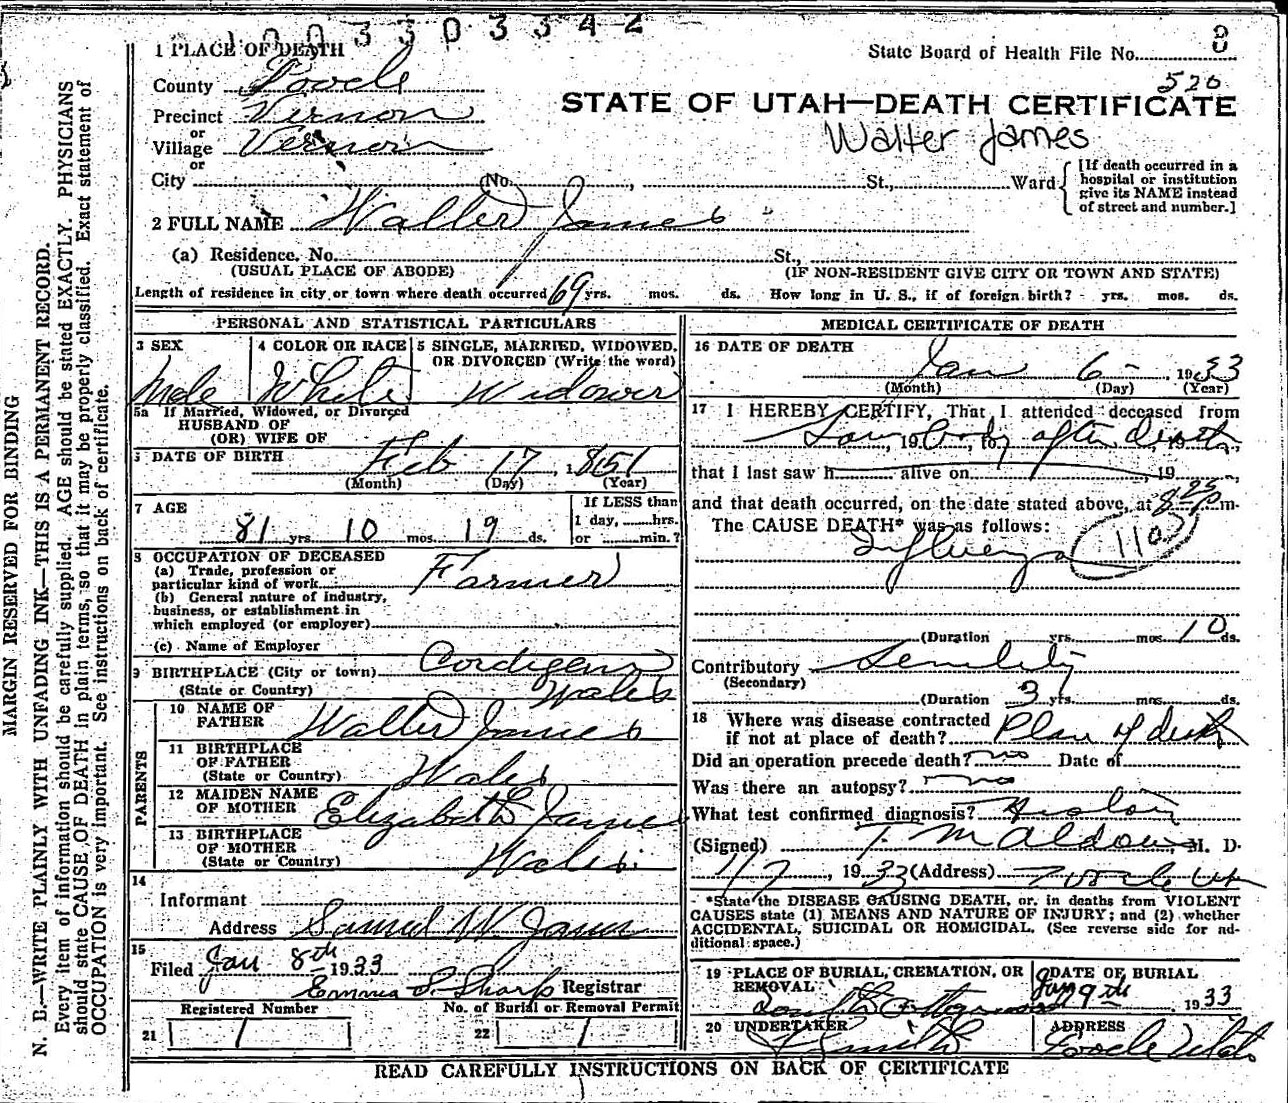 1003303342
1 PLACE OF DEATH
State Board of Health File No. 8
520
County Tooele
STATE OF UTAH—DEATH CERTIFICATE
Precinct Vernon
Walter James
or
Village Vernon
or
City (No. , St., Ward
[If death occurred in a
hospital or institution
give its NAME instead
of street and number.]
2 FULL NAME Walter James
(a) Residence. No. St.,
(USUAL PLACE OF ABODE) (IF NON-RESIDENT GIVE CITY OR TOWN AND STATE)
Length of residence in city or town where death occurred 69 yrs. mos. ds. How long in U. S., if of foreign birth? - yrs. mos. ds.
PERSONAL AND STATISTICAL PARTICULARS
3 SEX 4 COLOR OR RACE 5 SINGLE, MARRIED, WIDOWED,
OR DIVORCED (Write the word)
Male White Widower
5a If Married, Widowed, or Divorced
HUSBAND OF
(OR) WIFE OF
6 DATE OF BIRTH Feb 17, 1851
(Month) (Day) (Year)
7 AGE If LESS than
1 day, hrs.
81 yrs. 10 mos. 19 ds. or min.?
8 OCCUPATION OF DECEASED
(a) Trade, profession or
particular kind of work Farmer
(b) General nature of industry,
business, or establishment in
which employed (or employer)
(c) Name of Employer
9 BIRTHPLACE (City or town)
(State or Country) Wales
PARENTS
10 NAME OF
FATHER Walter James
11 BIRTHPLACE
OF FATHER
(State or Country) Wales
12 MAIDEN NAME
OF MOTHER Elizabeth James
13 BIRTHPLACE
OF MOTHER
(State or Country) Wales
14
Informant
Address Samuel W. James
15
Filed Jan 8th 1933
Emma S. Sharp Registrar
Registered Number No. of Burial or Removal Permit
21 / 22 /
MEDICAL CERTIFICATE OF DEATH
16 DATE OF DEATH
Jan 6 - , 1933
(Month) (Day) (Year)
17 I HEREBY CERTIFY, That I attended deceased from
Saw, 19 body, to after death, 19
that I last saw h alive on 19
and that death occurred, on the date stated above, at 8 25 p m.
The CAUSE DEATH* was as follows:
Influenza 110
(Duration yrs. mos. 10 ds.
Contributory Senility
(Secondary)
(Duration 3 yrs. mos. ds.
18 Where was disease contracted
if not at place of death? Place of death
Did an operation precede death? no Date of
Was there an autopsy? no
What test confirmed diagnosis? History
(Signed) T. M. Aldous, M. D.
1/7, 1933 (Address) Tooele Ut
*State the DISEASE CAUSING DEATH, or, in deaths from VIOLENT
CAUSES state (1) MEANS AND NATURE OF INJURY; and (2) whether
ACCIDENTAL, SUICIDAL OR HOMICIDAL. (See reverse side for ad-
ditional space.)
19 PLACE OF BURIAL, CREMATION, OR
REMOVAL
DATE OF BURIAL
Jan 9th 1933
20 UNDERTAKER ADDRESS
Smith Tooele Utah
READ CAREFULLY INSTRUCTIONS ON BACK OF CERTIFICATE
MARGIN RESERVED FOR BINDING
N. B.—WRITE PLAINLY WITH UNFADING INK—THIS IS A PERMANENT RECORD.
Every item of information should be carefully supplied. AGE should be stated EXACTLY. PHYSICIANS
should state CAUSE OF DEATH in plain terms, so that it may be properly classified. Exact statement of
OCCUPATION is very important. See instructions on back of certificate.